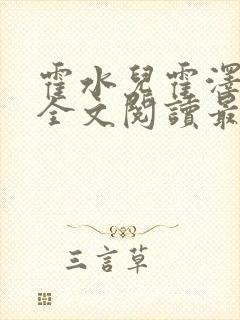 霍水兒霍澤
全文閱讀最
三言草